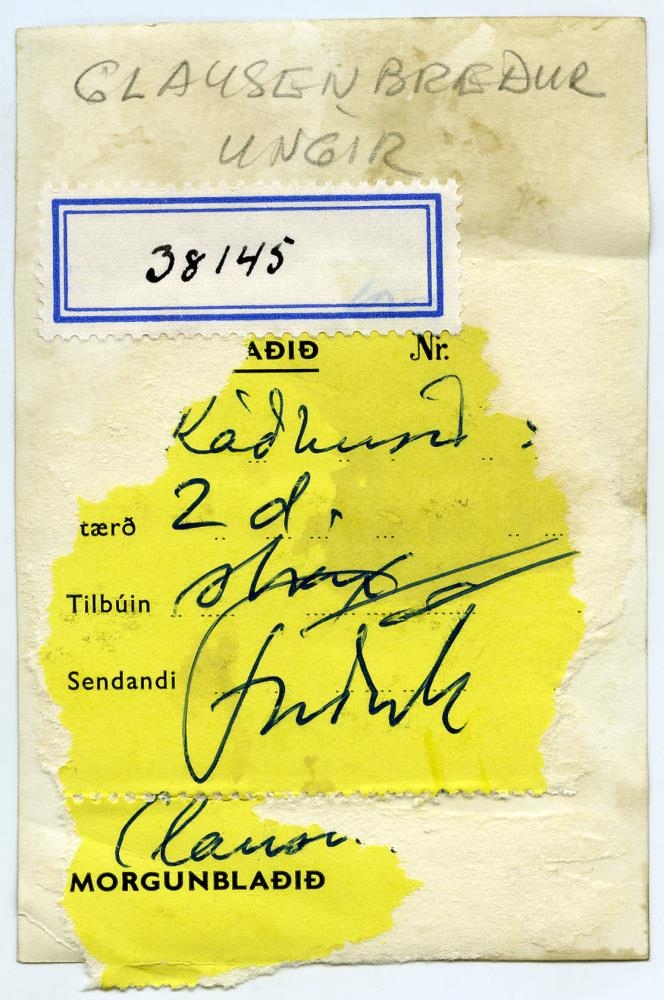 CLAUSENBRÆÐUR
UNGIR
38145
AÐIÐ Nr.
tærð 2 d.
Tilbúin strax
Sendandi
Clausen
MORGUNBLAÐIÐ